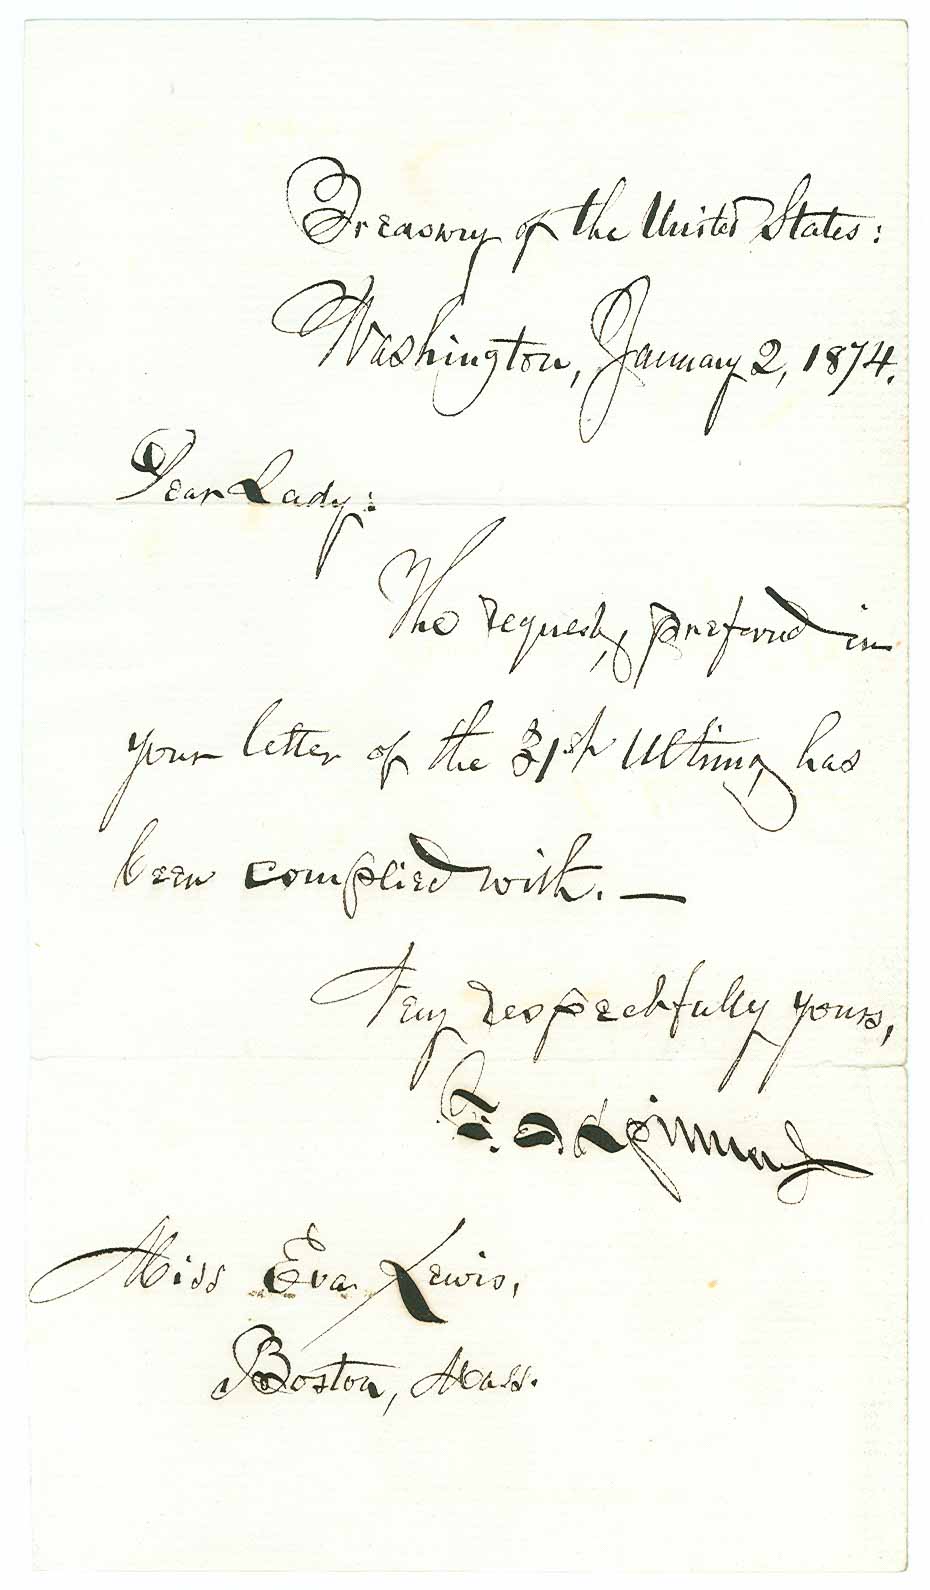 Treasury of the United States:
Washington, January 2, 1874.
Dear Lady:
The request, preferred in
your letter of the 31st Ultimo, has
been complied with. —
Very respectfully yours,
F. E. Spinner
Miss Eva Lewis,
Boston, Mass.